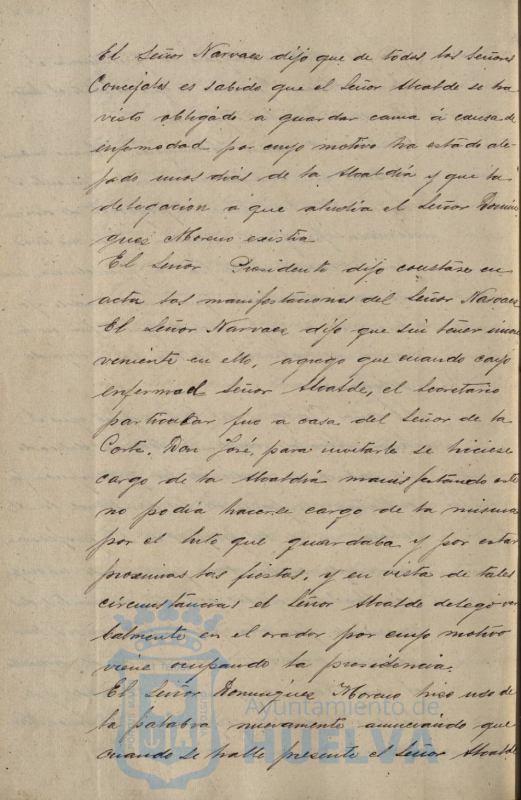 El Señor Narvaez dijo que de todos los Señores
Concejales es sabido que el Señor Alcalde se ha
visto obligado á guardar cama á causa de
enfermedad por cuyo motivo ha estado ale-
jado unos dias de la Alcaldía y que la
delegacion a que aludia el Señor Domin
guez Moreno existia
El Señor Presidente dijo constase en
acta las manifestaciones del Señor Narvaez
El Señor Narvaez dijo que sin tener incon
veniente en ello, agrego que cuando cayo
enfermo el Señor Alcalde, el Secretario
particular fue a casa del Señor de la
Corte, Don José, para invitarle se hiciese
cargo de la Alcaldía manifestando este
no podia hacerse cargo de la misma
por el luto que guardaba y por estar
proximas las fiestas, y en vista de tales
circumstancias el Señor Alcalde delegó ver
balmente en el orador por cuyo motivo
viene ocupando la presidencia.
El Señor Dominguez Moreno hizo uso de
la palabra nuevamente anunciando que
cuando se halle presente el Señor Alcalde
Ayuntamiento de
HUELVA